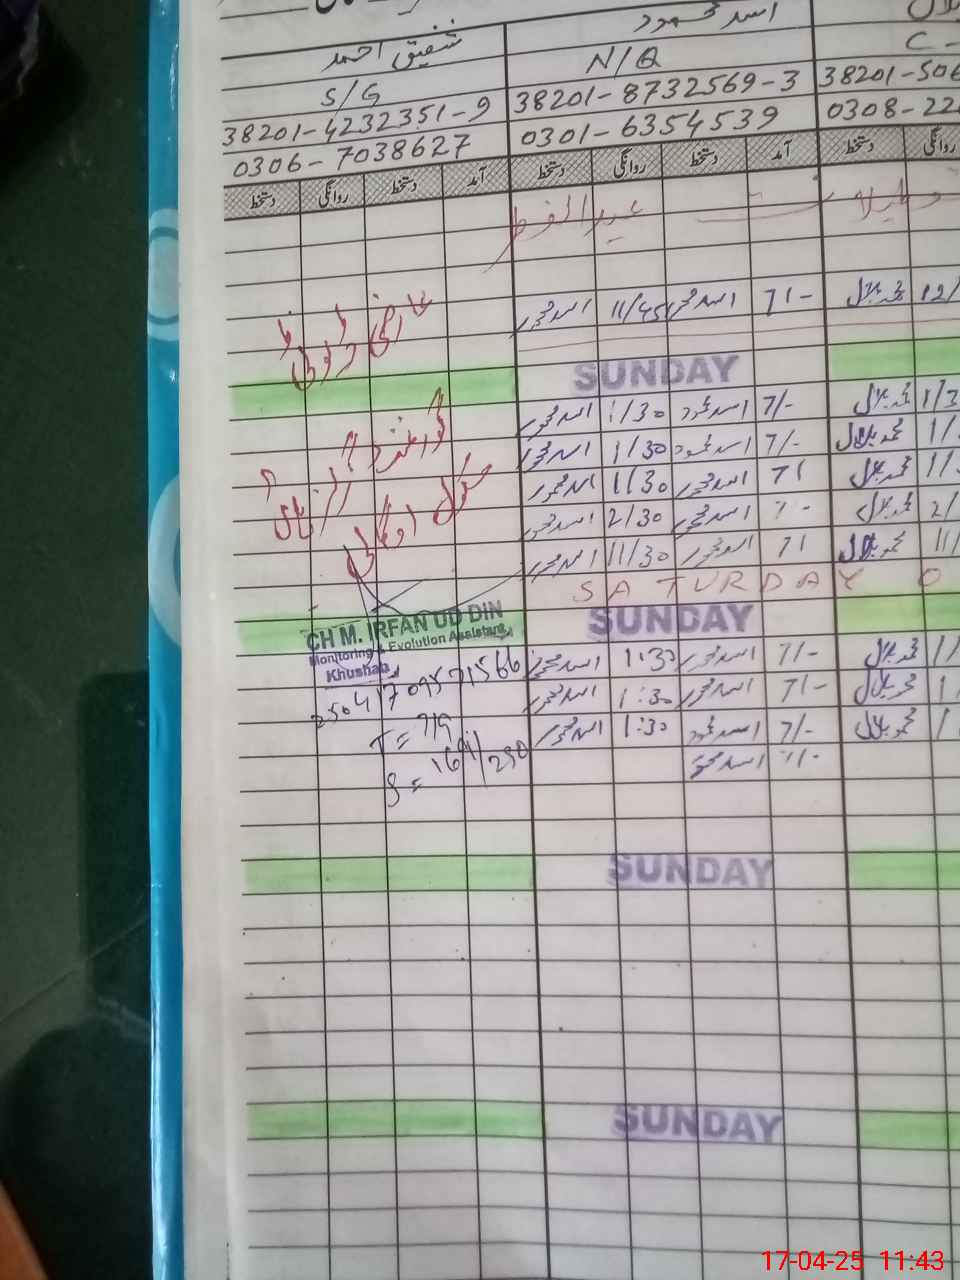 شفیق احمد اسد محمود
S/G N/Q C-
38201-4232351-9 38201-8732569-3 38201-506
0306-7038627 0301-6354539 0308-22
دستخط روانگی دستخط آمد دستخط روانگی دستخط آمد دستخط روانگی
عید الفطر
اسد محمود 11/45 اسد محمود 7/- محمد بلال 12/
عارضی ڈیوٹی
SUNDAY
اسد محمود 1/30 اسد محمود 7/- محمد بلال 1/3
گورنمنٹ گرلز ہائی
اسد محمود 1/30 اسد محمود 7/- محمد بلال 1/
سکول
اسد محمود 1/30 اسد محمود 7/ محمد بلال 1/
اسد محمود 2/30 اسد محمود 7- محمد بلال 2/
اسد محمود 11/30 اسد محمود 7/ محمد بلال 11/
SATURDAY O
SUNDAY
CH M. IRFAN UD DIN
Monitoring & Evolution Assistant
Khushab
اسد محمود 1:30 اسد محمود 7/- محمد بلال 1/
اسد محمود 1:30 اسد محمود 7/- محمد بلال 1
اسد محمود 1:30 اسد محمود 7/- محمد بلال 1
اسد محمود 7/-
2504170957 1566
T = 7/9
S = 169/290
SUNDAY
SUNDAY
17-04-25 11:43